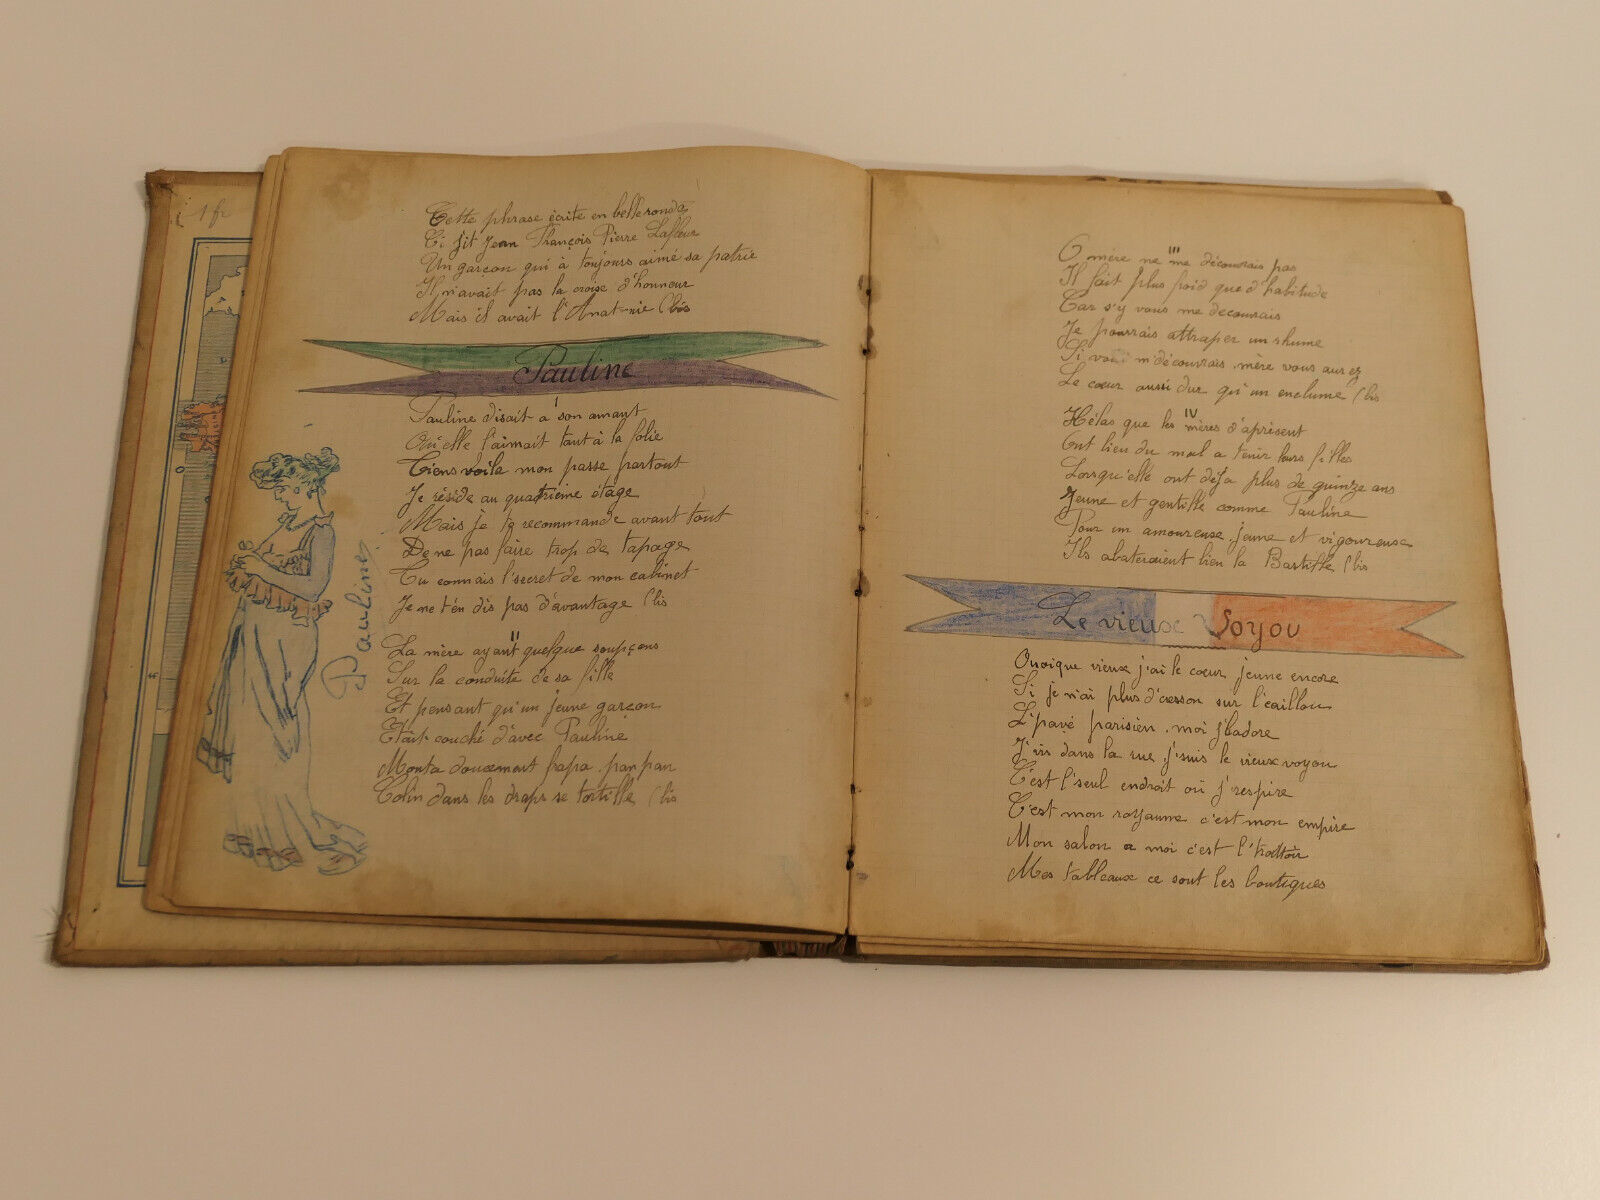 1 fr
Cette phrase écrite en belle ronde
Ci gît Jean François Pierre Lafleur
Un garçon qui à toujours aimé sa patrie
Il n'avait pas la croix d'honneur
Mais il avait l'Anatomie (bis
Pauline
I
Pauline disait a son amant
Qu'elle l'aimait tant à la folie
Tiens voila mon passe partout
Je réside au quatrième étage
Mais je te recommande avant tout
De ne pas faire trop de tapage
Tu connais l'secret de mon cabinet
Je ne t'en dis pas d'avantage (bis
II
La mère ayant quelque soupçons
Sur la conduite de sa fille
Et pensant qu'un jeune garçon
Etait couché d'avec Pauline
Monta doucement papa pan pan
Colin dans les draps se tortille (bis
Pauline
III
O mère ne me découvrais pas
Il fait plus froid que d'habitude
Car s'y vous me decouvrais
Je pourrais attraper un rhume
Si vous m'découvrais, mère vous aurez
Le cœur aussi dur qu'un enclume (bis
IV
Hélas que les mères d'aprèsent
Ont lieu du mal a tenir leurs filles
Lorsqu'elle ont déja plus de quinze ans
Jeune et gentille comme Pauline
Pour un amoureuse, jeune et vigoureuse
Ils abateraient bien la Bastille (bis
Le vieux Voyou
Quoique vieux j'ai le cœur jeune encore
Si je n'ai plus d'cresson sur l'caillou
L'pavé parisien, moi j'ladore
J'vis dans la rue, j'suis le vieux voyou
C'est l'seul endroit où j'respire
C'est mon royaume c'est mon empire
Mon salon a moi c'est l'trottoir
Mes tableaux ce sont les boutiques